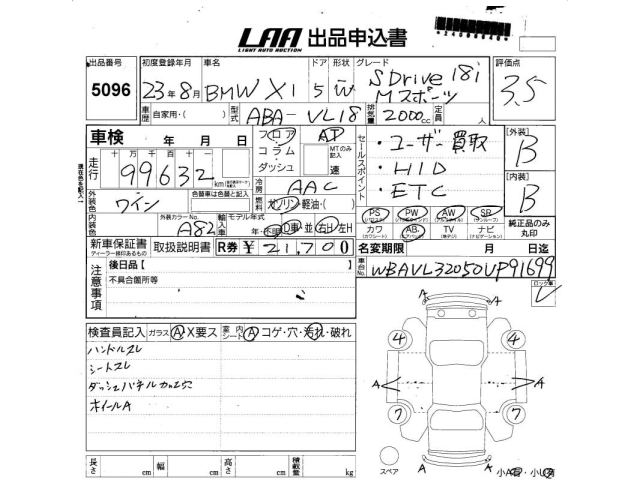 LAA 出品申込書
LIGHT AUTO AUCTION
出品番号 初度登録年月 車名 ドア 形状 グレード 評価点
5096 23年8月 BMW X1 5 W SDrive 18i Mスポーツ 3.5
車歴 自家用・( ) 型式 ABA-VL18 排気量 2000cc 定員 人
車検 年 月 日 フロア AT
コラム MTのみ記入
ダッシュ 速
走行 十万千百十一
99632 km
冷房 AAC
燃料 ガソリン・軽油・( )
外装色 ワイン 色替車は色替と記入
内装色 外装カラーNo. A82 輸入車 モデル年式 年・不明 D車・並 右H 左H
セールスポイント
・ユーザー買取
・HID
・ETC
【外装】 B
【内装】 B
PS PW AW SP
カワ AB TV ナビ
純正品のみ丸印
新車保証書 取扱説明書 R券 ¥21,700 名変期限 月 日迄
ディーラー捺印あるもの
注意事項 後日品【 】
不具合箇所等
車台No. WBAVL32050VP91699
検査員記入 ガラス A・X要ス 室内 シート A コゲ・穴・汚れ・破れ
ハンドルスレ
シートスレ
ホイールA
長さ cm 幅 cm 高さ cm 積載量 kg
A A
4 4
A A
7 7
A A
スペア